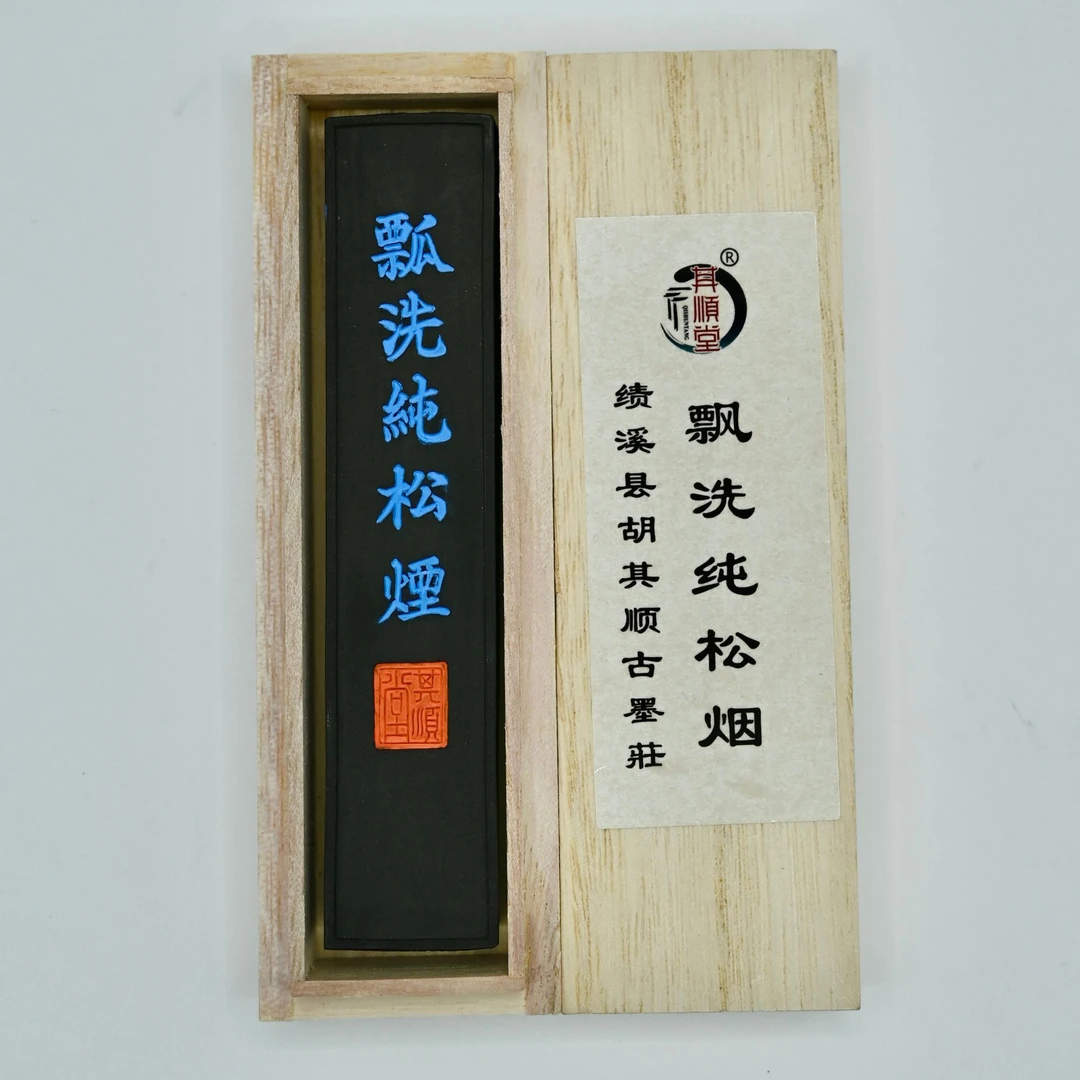 瓢洗純松煙
其順堂
®
其順堂
QISHUNTANG
飘洗纯松烟
绩溪县胡其顺古墨莊